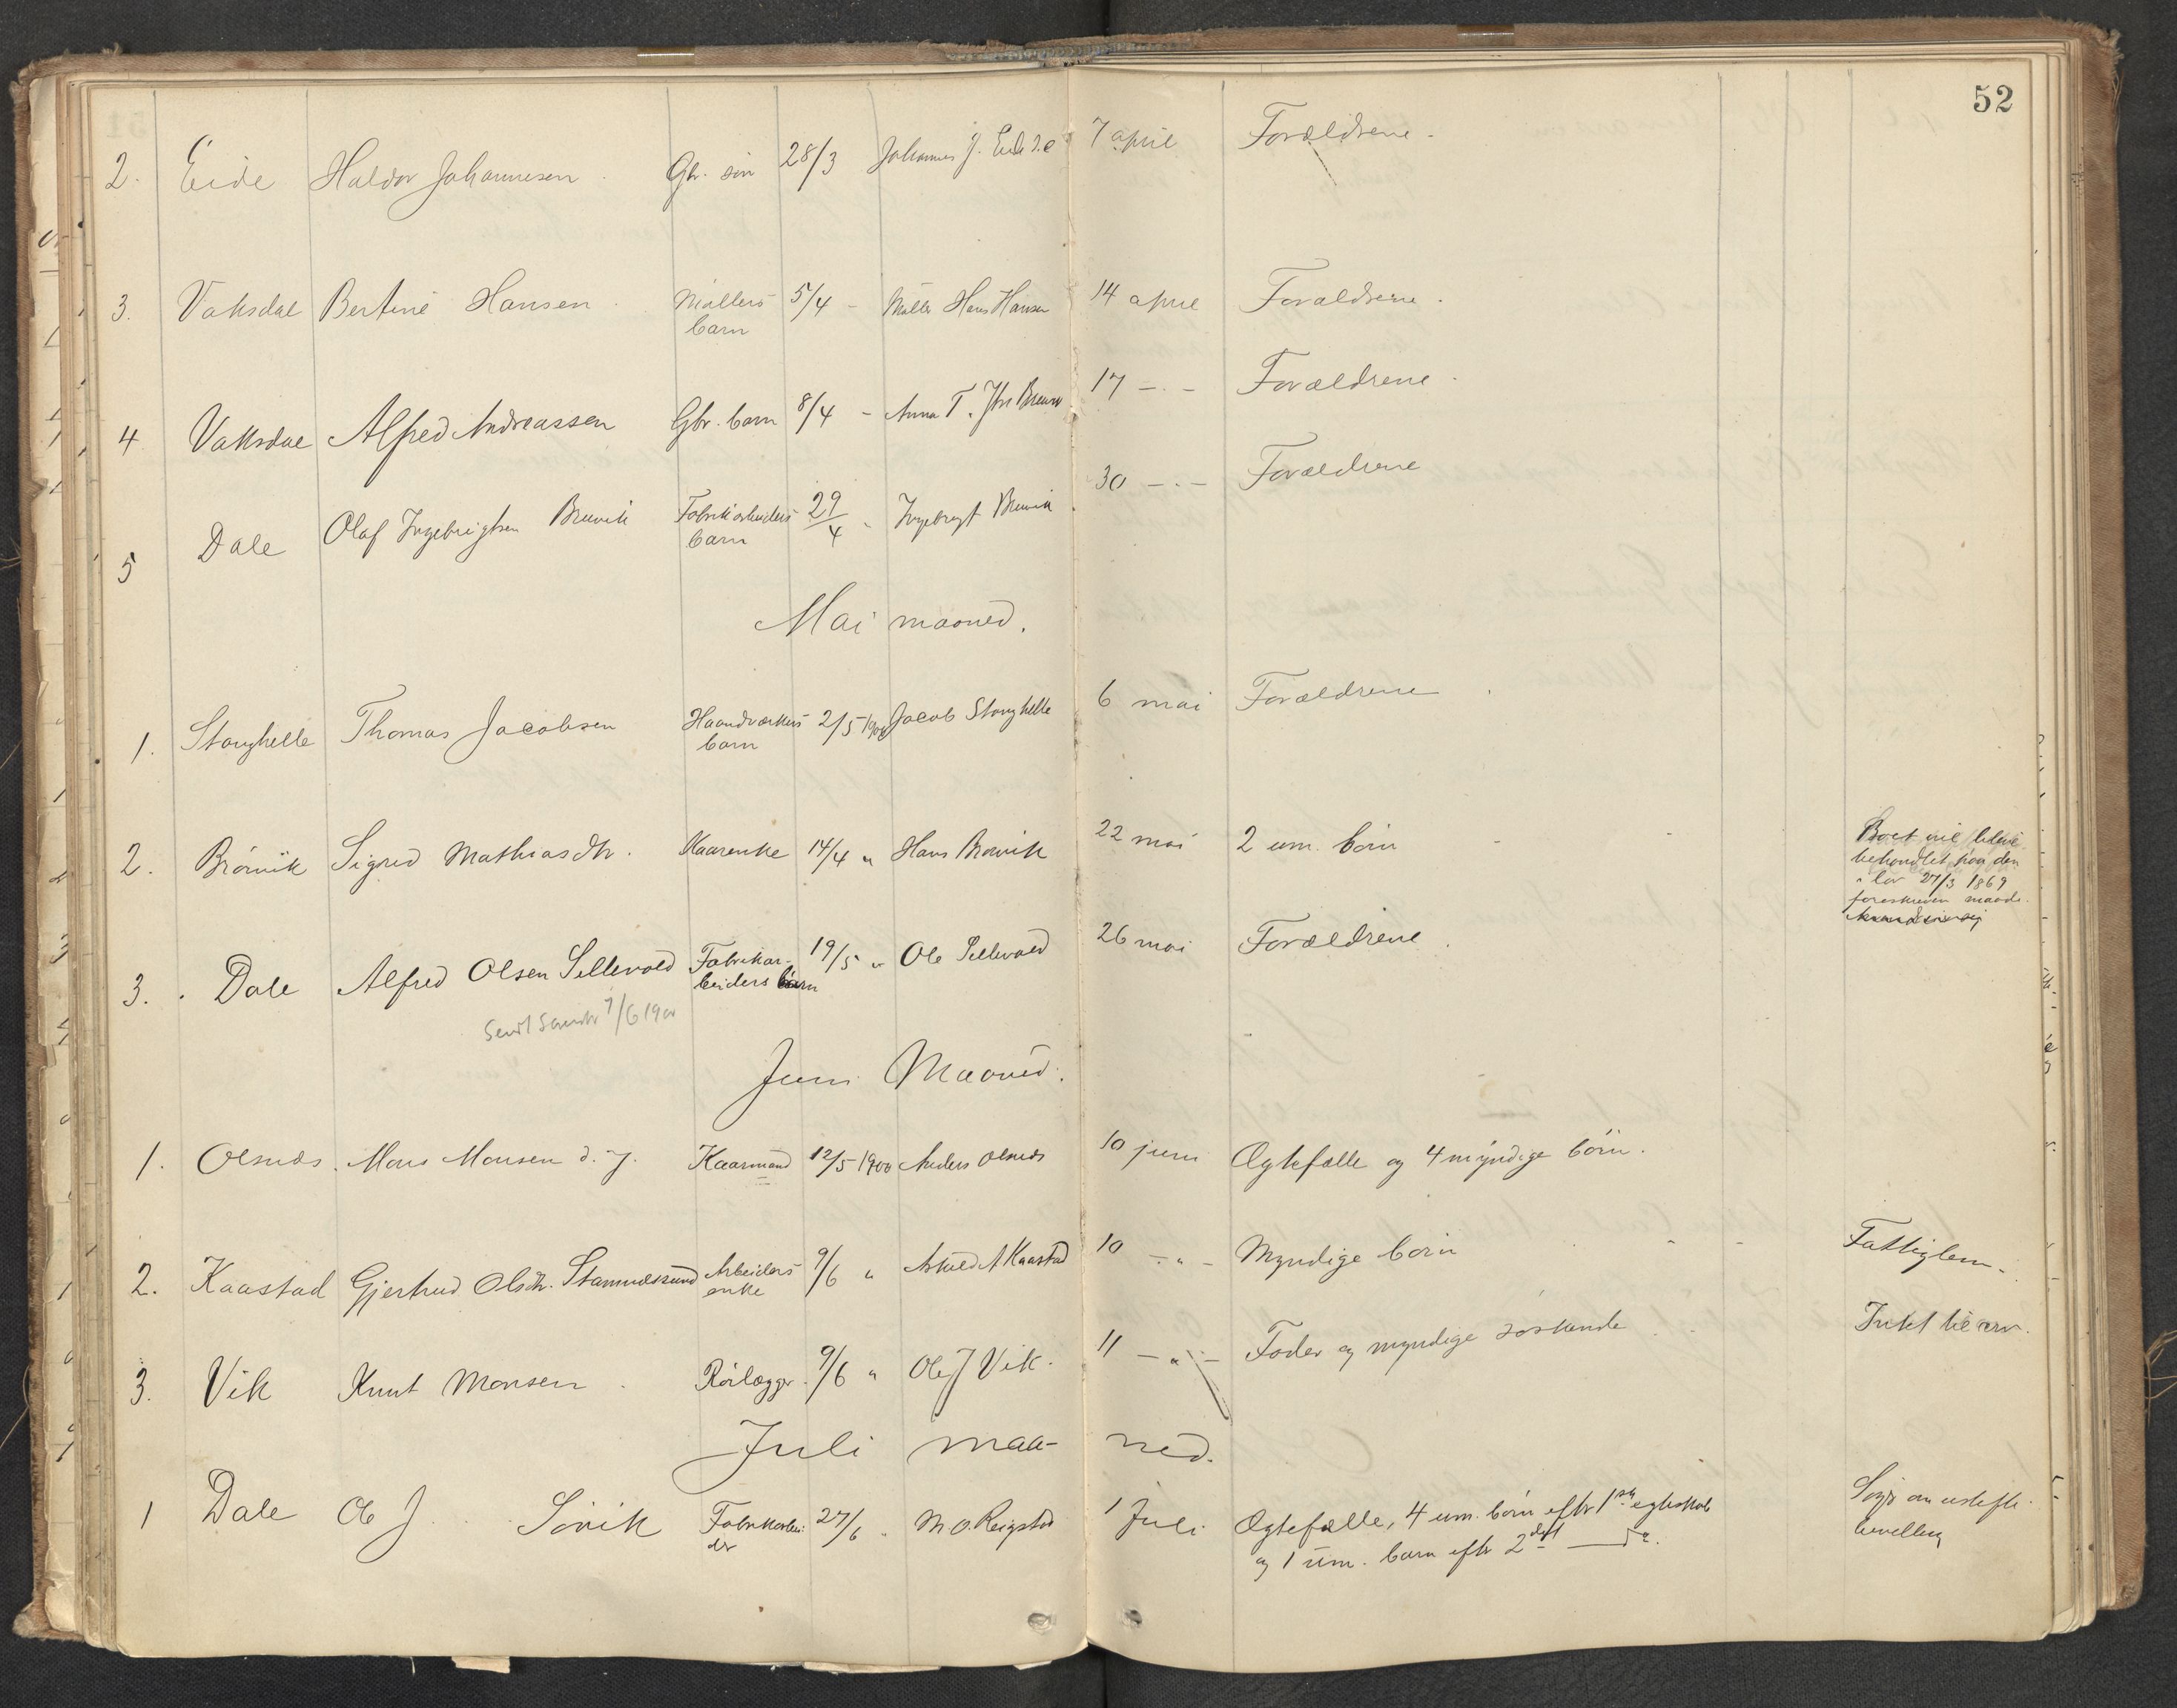 52
2. Eide Haldor Johannesen Gbr. søn 28/3 Johannes J. Eide 7 april Forældrene
3. Vaksdal Bertine Hansen Møllers 5/4 - Møller Hans Hansen 14 april Forældrene
barn
4 Vaksdal Alfred Andreassen Gbr. barn 8/4 - Anna T. 17 - . - Forældrene
5 Dale Olaf Ingebrigtsen Brewik Fabrikarbeiders 29/4 " Ingebrigt Brewik 30 - . - Forældrene
barn
Mai maaned.
1. Stanghelle Thomas Jacobsen Haandværkers 2/5 1900 Jacob Stanghelle 6 mai Forældrene
barn
2. Brørvik Sigrid Mathiasdtr. Kaarenke 14/4 " Hans Brørvik 22 mai 2 um. børn
Boet vil blive
behandlet paa den
i lov 27/3 1869
foreskreven maade.
3. Dale Alfred Olsen Sellevold Fabrikar- 19/5 " Ole Sellevold 26 mai Forældrene
beiders barn
Sendt 7/6 1900
Juni Maaned.
1. Olsnæs. Mons Monsen d. y. Kaarmand 12/5 1900 Anders Olsnæs 10 juni Ægtefælle og 4 myndige børn.
2. Kaastad Gjertrud Olsdtr. Stamnæssund Arbeiders 9/6 " A Kaastad 10 - " - Myndige børn Fattiglem.
enke
3. Vik Knut Monsen Rørlægger. 9/6 " Ole J Vik. 11 - " - Fader og myndige søskende Intet til arv.
Juli maa- ned.
1 Dale Ole J. Sørvik Fabrikarbei- 27/6 " M. O. Reigstad 1 Juli Ægtefælle, 4 um. børn efter 1ste egteskab
der og 1 um. barn efter 2det do.
Søgt om uskifte-
bevilling